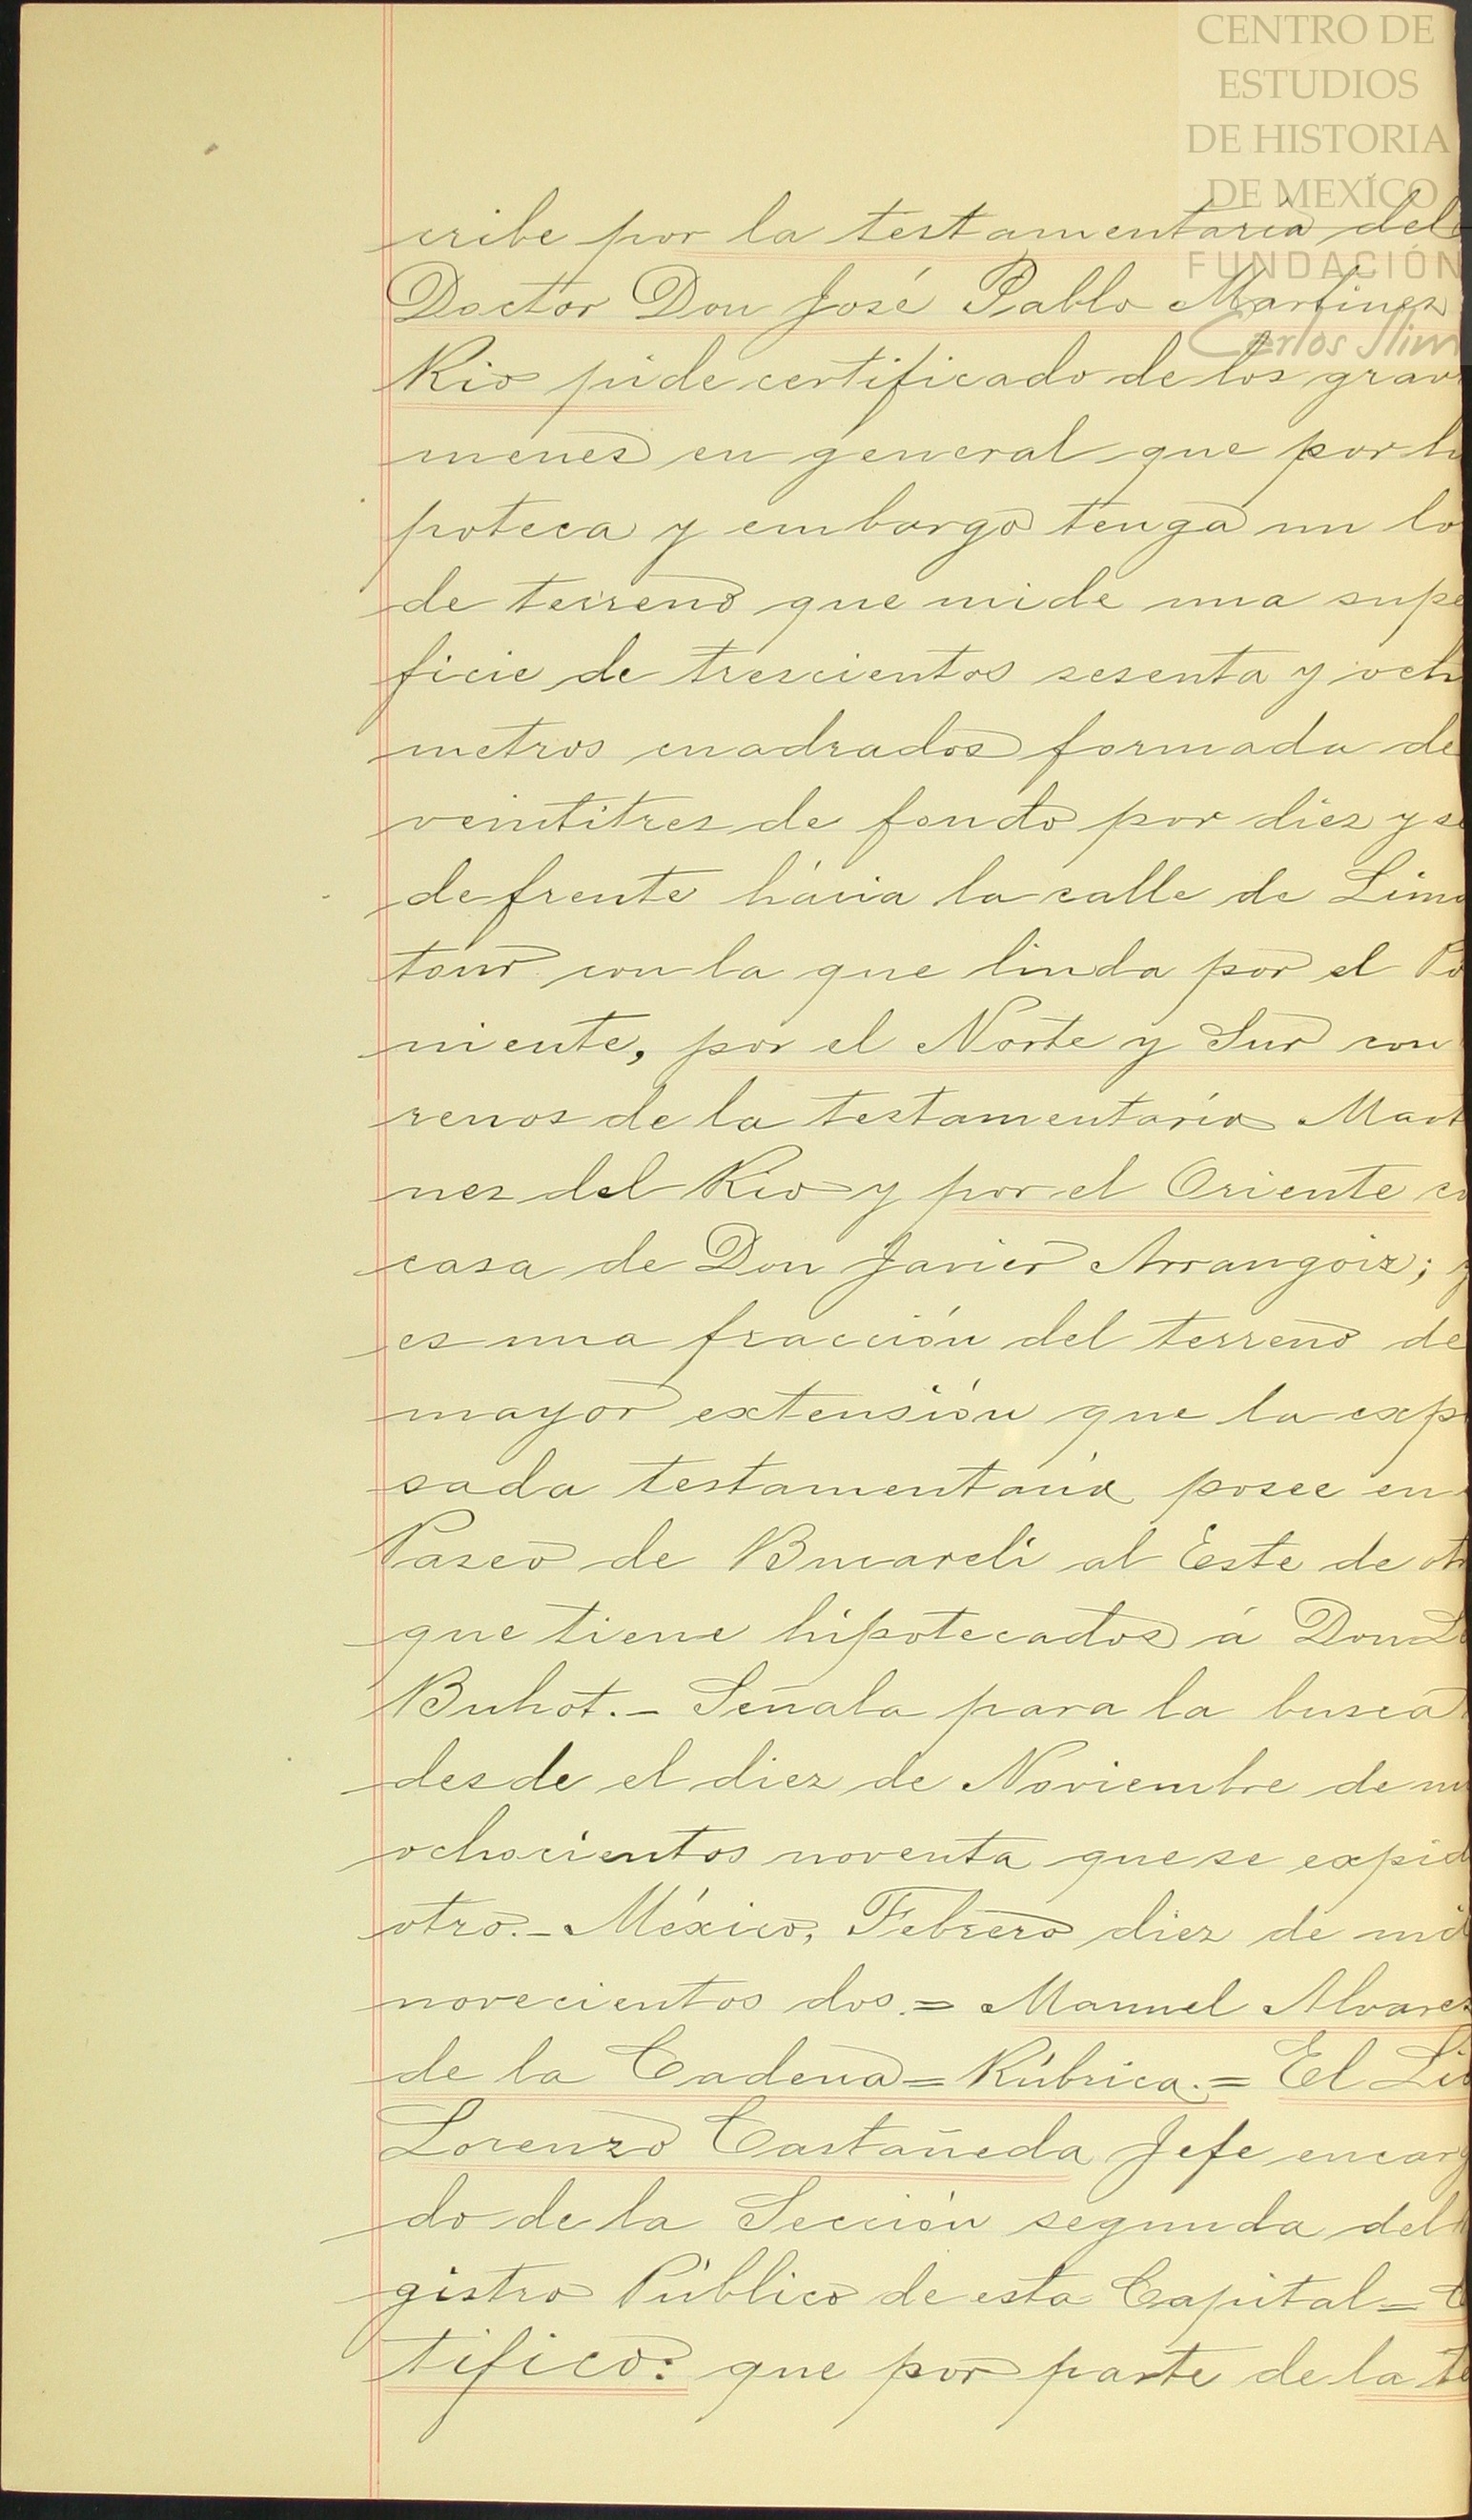 CENTRO DE
ESTUDIOS
DE HISTORIA
DE MEXÍCO
FUNDACIÓN
Carlos Slim
cribe por la testamentaría del
Doctor Don José Pablo Martinez
Rio pide certificado de los grav
menes en general que por hi
poteca y embargo tenga un lo
de terreno que mide una supe
ficie de trescientos sesenta y och
metros cuadrados formada de
veintitres de fondo por diez y se
de frente hácia la calle de Lima
tour con la que linda por el Po
niente, por el Norte y Sur con
renos de la testamentaría Mart
nez del Rio y por el Oriente co
casa de Don Javier Arrangoiz; y
es una fracción del terreno de
mayor extensión que la exp
sada testamentaría posee en
Paseo de Bucareli al Este de ot
que tiene hipotecados á Don
Buhot.- Señala para la busca
desde el diez de Noviembre de m
ochocientos noventa que se expid
otro.- México, Febrero diez de mil
novecientos dos.= Manuel Alvarez
de la Cadena= Rúbrica.= El Lic
Lorenzo Castañeda Jefe encarg
do de la Sección segunda del
gistro Público de esta Capital=
tifico: que por parte de la te